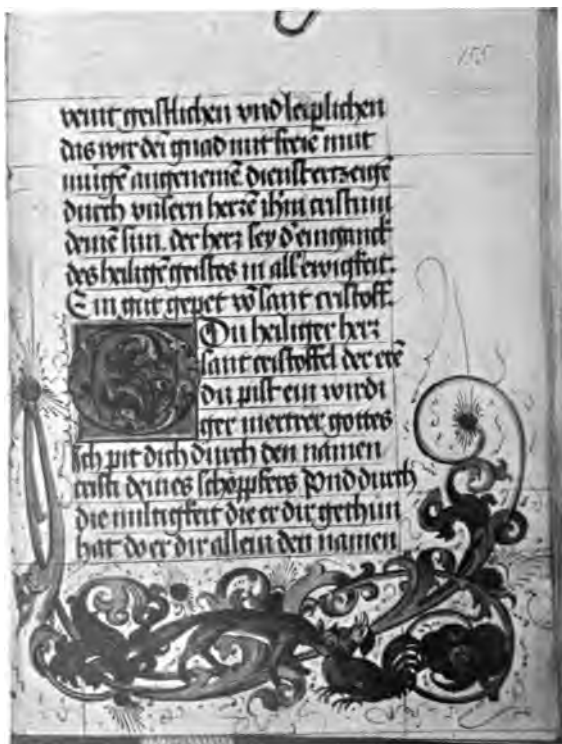 155
veint geistlichen vnd leiplichen
das wir dei gnad mit freiē mut
mügē angenemē dienst ertzeigē
durch vnsern herrē ihm cristum
deinē sun. der herr sey d'eingank
des heiligē geistes in all ewigkeit.
Ein gut gepet vō sant cristoff.
Du heiliger herr
sant cristoffel der erē
du pist ein wirdi
ger mertrer gottes
Ich pit dich durch den namen
cristi deines schöppfers Vnd durch
die miltigkeit die er dir gethun
hat do er dir allein den namen